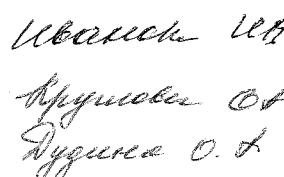 Иванов ИВ
Круглова ОА
Дудина О.А